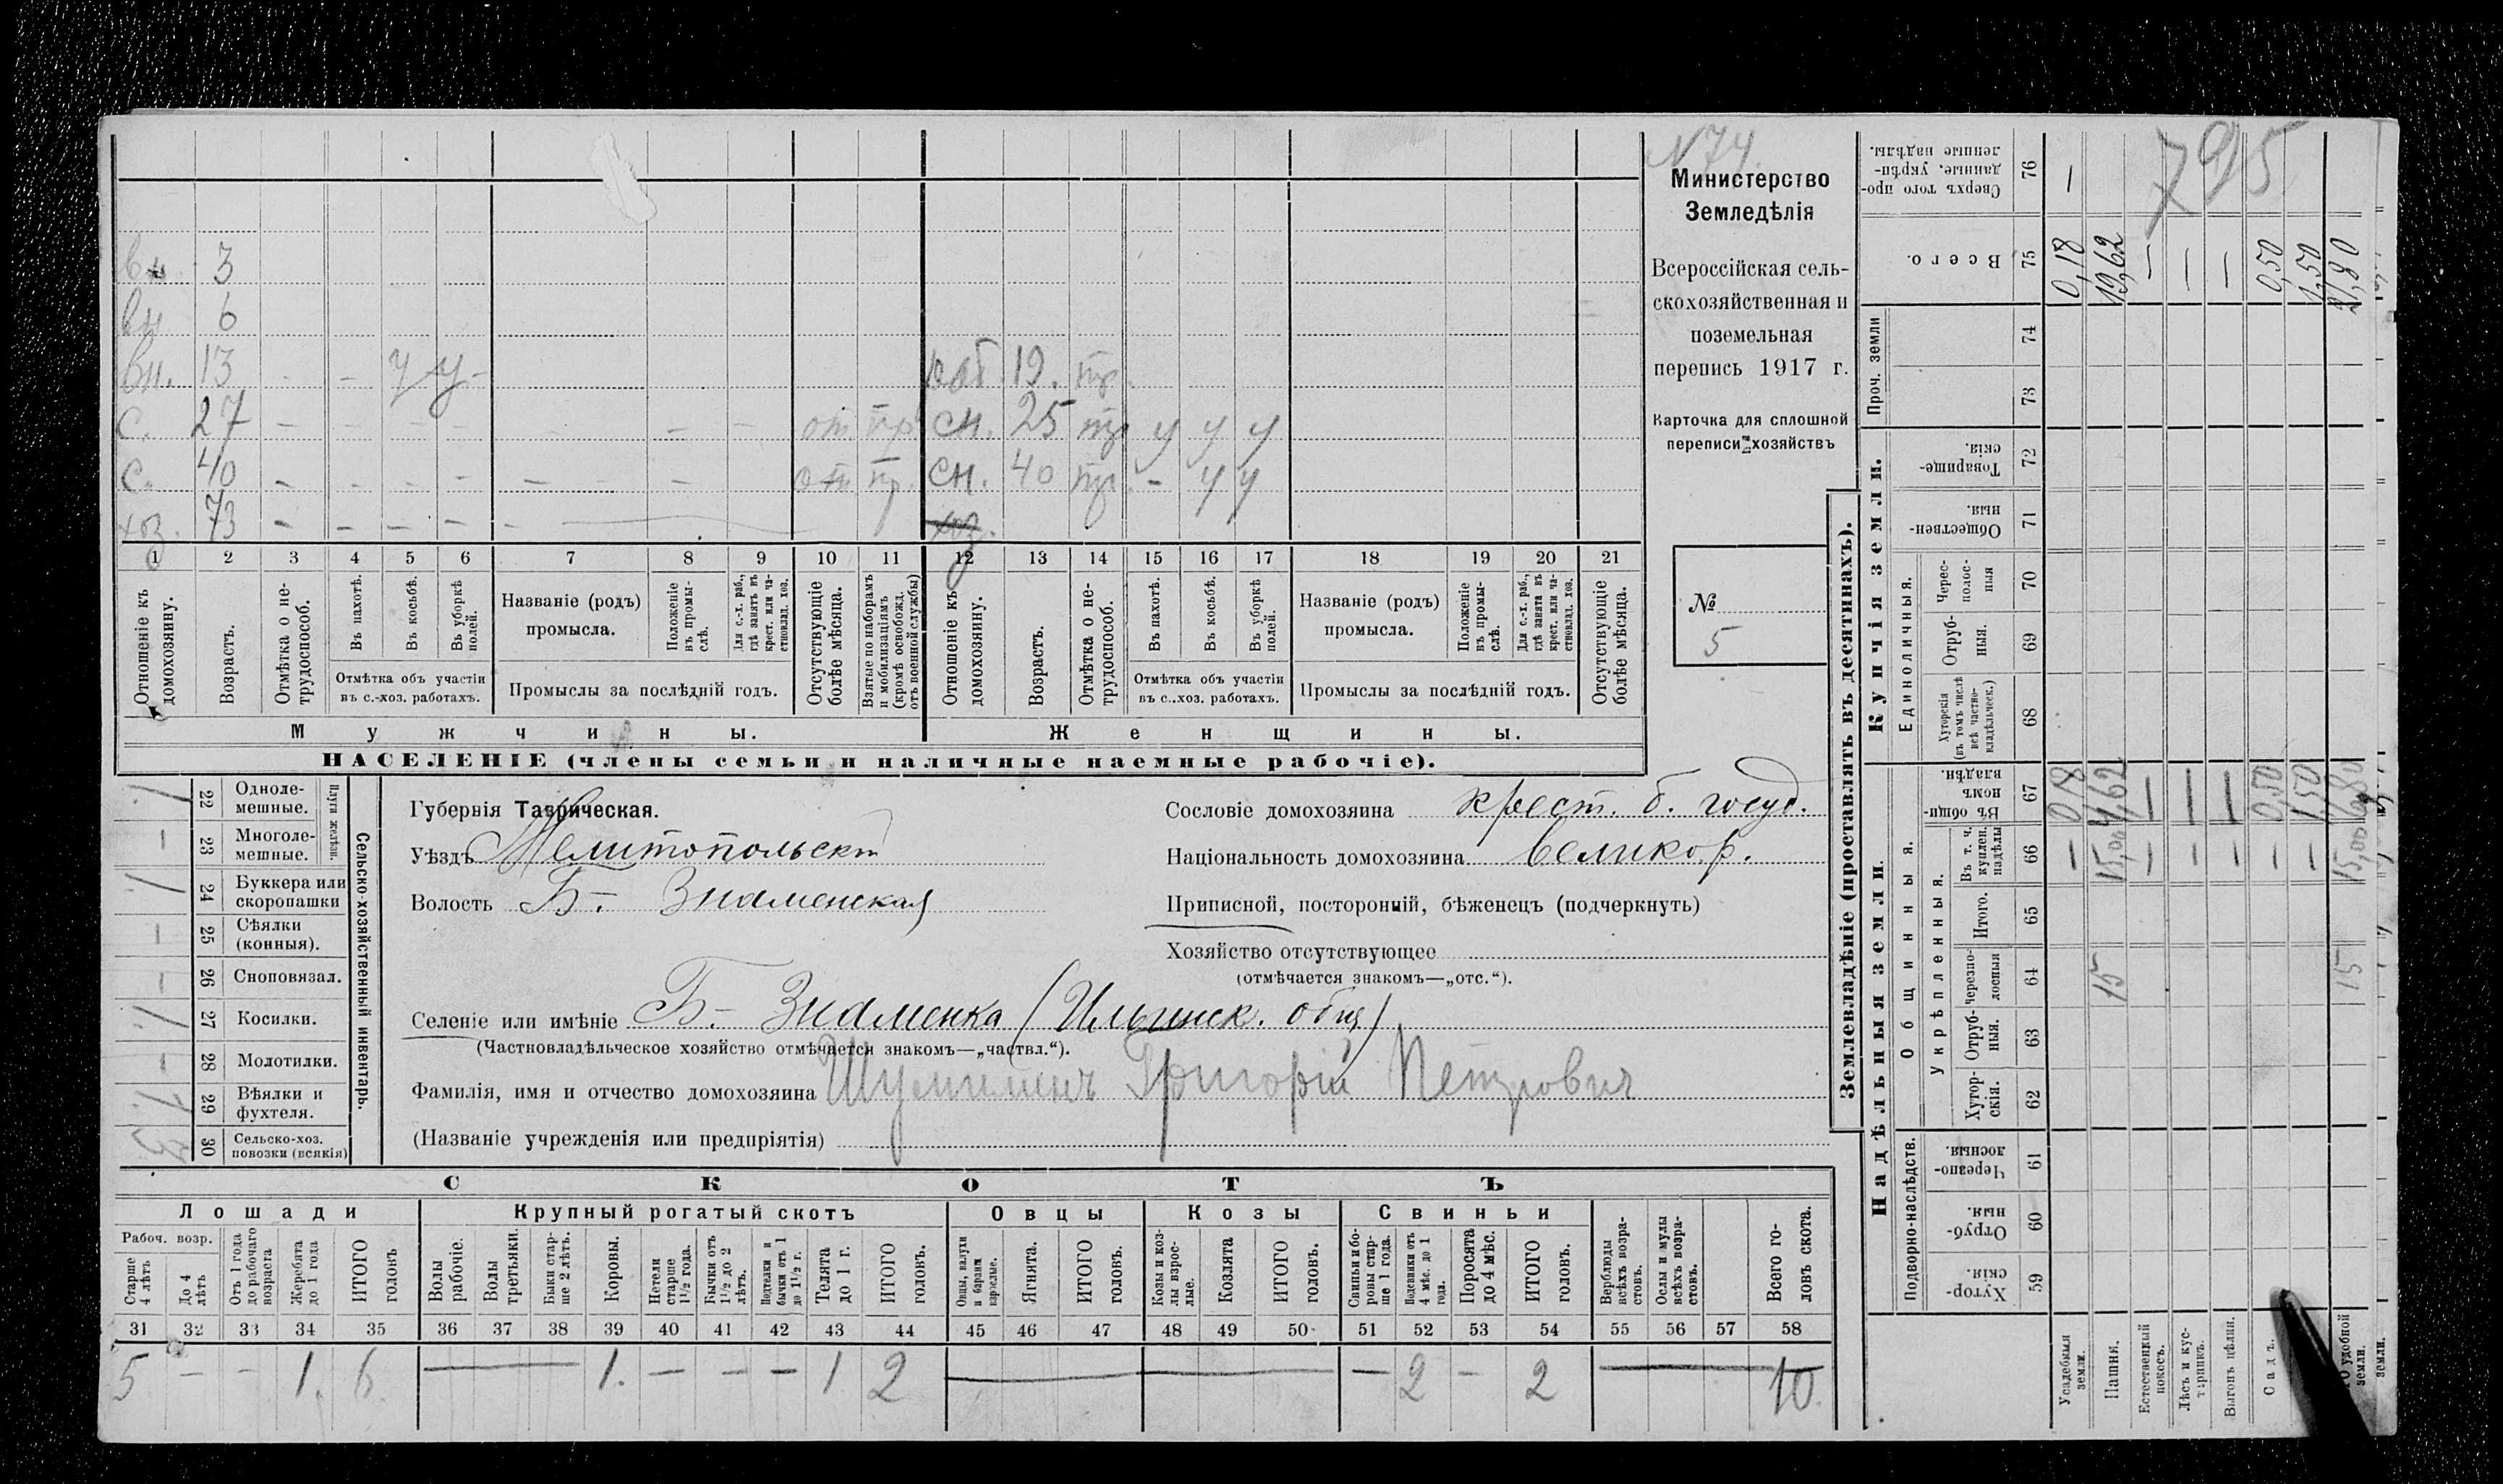 №74.
795
Министерство
Земледѣлія
Всероссійская сель-
скохозяйственная и
поземельная
перепись 1917 г.
Карточка для сплошной
переписи хозяйствъ
№
5
вн. 3
вн 6
вн. 13 - - у у -
раб. 19. пр.
с. 27 - - - - - - - от. пр.
сн. 25 пр у у у
с. 40 - - - - - - - от. пр.
сн. 40 пр. - у у
хоз. 73 - - - - -
хоз.
1 2 3 4 5 6 7 8 9 10 11 12 13 14 15 16 17 18 19 20 21
Отношеніе къ домохозяину.
Возрастъ.
Отмѣтка о не-трудоспособ.
Въ пахотѣ.
Въ косьбѣ.
Въ уборкѣ полей.
Отмѣтка объ участіи
въ с.-хоз. работахъ.
Названіе (родъ)
промысла.
Положеніе въ промы-слѣ.
Для с.-х. раб., гдѣ занятъ въ крест. или ча-стновлад. хоз.
Промыслы за послѣдній годъ.
Отсутствующіе болѣе мѣсяца.
Взятые по наборамъ и мобилизаціямъ (кромѣ освобожд. отъ военной службы)
Отношеніе къ домохозяину.
Возрастъ.
Отмѣтка о не-трудоспособ.
Въ пахотѣ.
Въ косьбѣ.
Въ уборкѣ полей.
Отмѣтка объ участіи
въ с.-хоз. работахъ.
Названіе (родъ)
промысла.
Положеніе въ промы-слѣ.
Для с.-х. раб., гдѣ занята въ крест. или ча-стновлад. хоз.
Промыслы за послѣдній годъ.
Отсутствующіе болѣе мѣсяца.
Мужчины.
Женщины.
НАСЕЛЕНІЕ (члены семьи и наличные наемные рабочіе).
Сельско-хозяйственный инвентарь.
Плуги желѣзн.
1 22 Одноле-мешные.
- 23 Многоле-мешные.
1 24 Буккера или скоропашки
- 25 Сѣялки (конныя).
- 26 Сноповязал.
1 27 Косилки.
- 28 Молотилки.
1 29 Вѣялки и фухтеля.
30 Сельско-хоз. повозки (всякія)
Губернія Таврическая.
Уѣздъ Мелитопольскій
Волость Б- Знаменская
Селеніе или имѣніе Б- Знаменка (Ильинск. общ)
(Частновладѣльческое хозяйство отмѣчается знакомъ—„частвл.“).
Фамилія, имя и отчество домохозяина Шумилинъ Григорій Петрович
(Названіе учрежденія или предпріятія)
Сословіе домохозяина крест. б. госуд.
Національность домохозяина великор.
Приписной, посторонній, бѣженецъ (подчеркнуть)
Хозяйство отсутствующее
(отмѣчается знакомъ—„отс.“).
СКОТЪ
Лошади
Крупный рогатый скотъ
Овцы
Козы
Свиньи
Рабоч. возр.
Старше 4 лѣтъ
До 4 лѣтъ
Отъ 1 года до рабочаго возраста
Жеребята до 1 года
ИТОГО головъ
Волы рабочіе.
Волы третьяки.
Быки стар-ше 2 лѣтъ.
Коровы.
Нетели старше 1½ года.
Бычки отъ 1½ до 2 лѣтъ.
Подтелки и бычки отъ 1 до 1½ г.
Телята до 1 г.
ИТОГО головъ.
Овцы, валухи и бараны взрослые.
Ягнята.
ИТОГО головъ.
Козы и коз-лы взрос-лые.
Козлята
ИТОГО головъ.
Свиньи и бо-ровы стар-ше 1 года.
Подсвинки отъ 4 мѣс. до 1 года.
Поросята до 4 мѣс.
ИТОГО головъ.
Верблюды всѣхъ возра-стовъ.
Ослы и мулы всѣхъ возра-стовъ.
Всего го-ловъ скота.
31 32 33 34 35 36 37 38 39 40 41 42 43 44 45 46 47 48 49 50 51 52 53 54 55 56 57 58
5 - - 1. 6 — 1. - - - 1 2 — — - 2 - 2 — 10.
Землевладѣніе (проставлять въ десятинахъ).
Надѣльныя земли.
Купчія земли.
Проч. земли
Подворно-наслѣдств.
Общинныя.
Укрѣпленныя.
Единоличныя.
Хутор-скія. 59
Отруб-ныя. 60
Черезпо-лосныя. 61
Хутор-скія. 62
Отруб-ныя. 63
Черезпо-лосныя 64
Итого. 65
Въ т. ч. куплен. надѣлы 66
Въ общи-номъ владѣн. 67
Хуторскія (въ томъ числѣ всѣ частно-владѣльческ.) 68
Отруб-ныя. 69
Черес-полос-ныя 70
Обществен-ныя. 71
Товарище-скія. 72
73
74
Всего. 75
Сверхъ того про-данные, укрѣп-ленные надѣлы. 76
Усадебныя земли. - 0,18 0,18 -
Пашня. 15 15,00 4,62 19,62
Естественный покосъ. - - -
Лѣсъ и кус-тарникъ. - - -
Выгонъ цѣлин. - - -
Садъ. - 0,50 0,50
- 1,50 1,50
удобной земли. 15 15,00 6,80 21,80
земли.